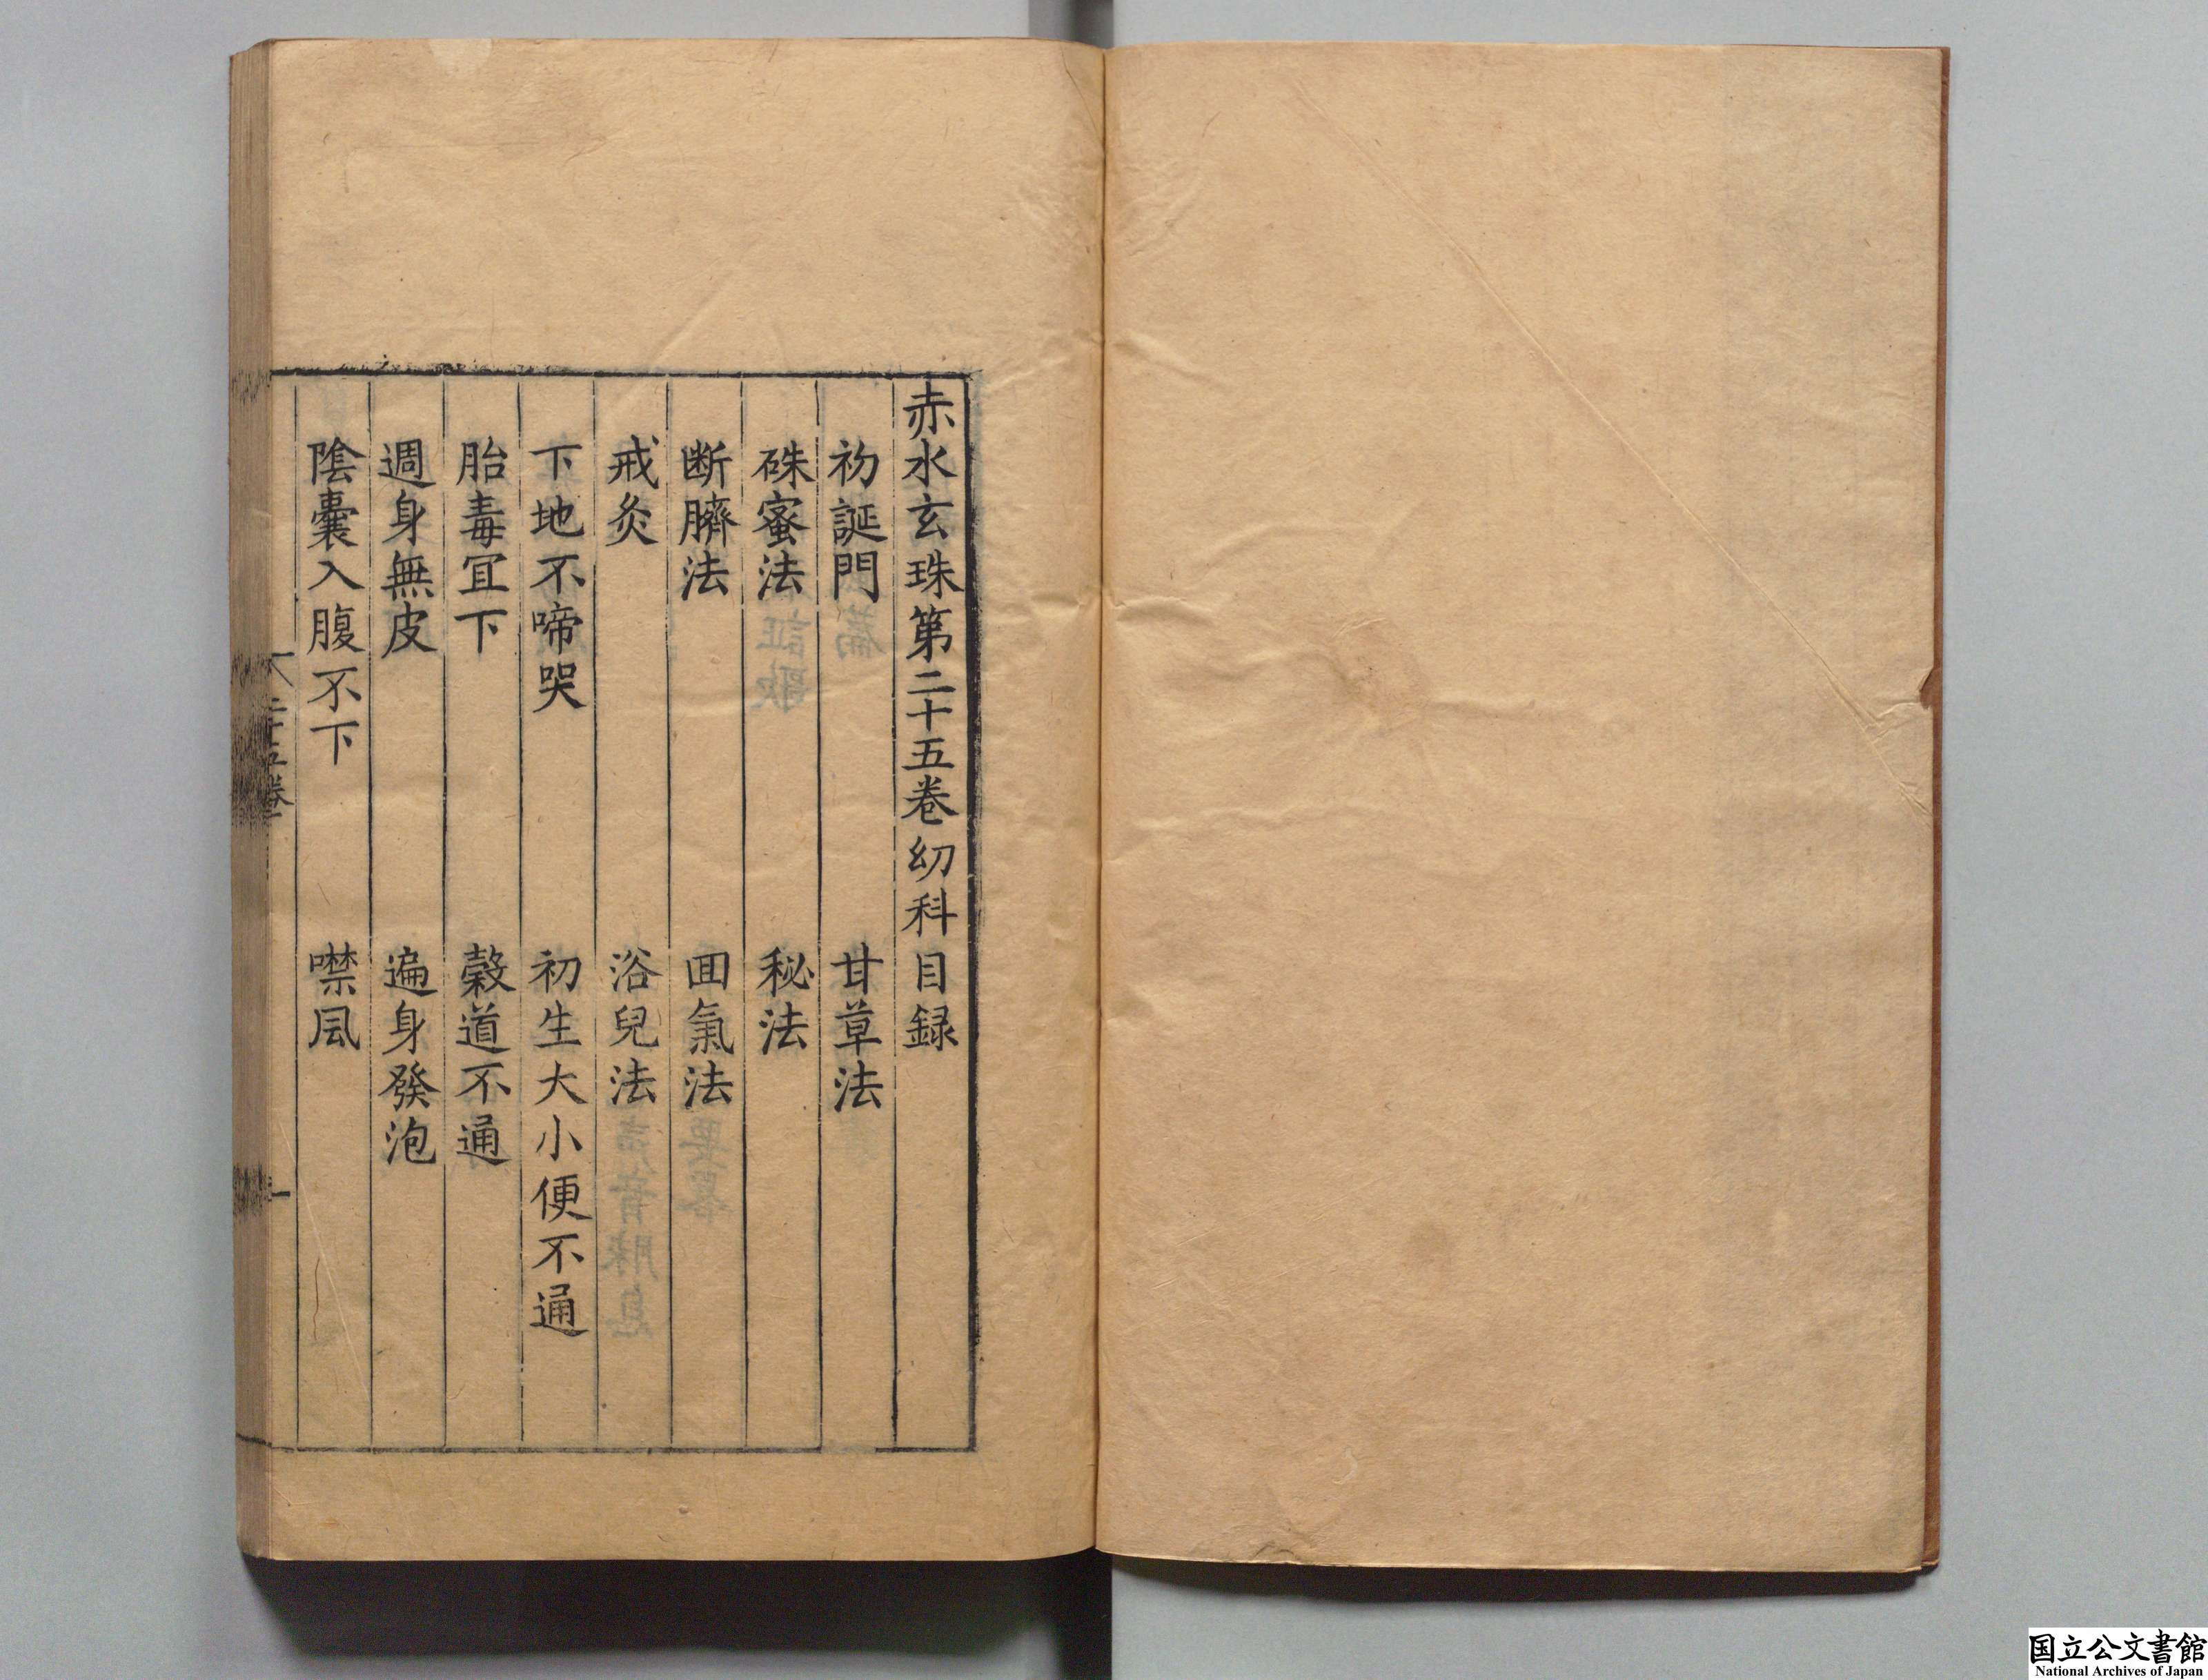 赤水玄珠第二十五卷幼科目録
初誕門　甘草法
硃蜜法　秘法
断臍法　回氣法
戒灸　浴兒法
下地不啼哭　初生大小便不通
胎毒宜下　穀道不通
週身無皮　遍身發泡
陰囊入腹不下　噤风
二十五卷
一
国立公文書館
National Archives of Japan